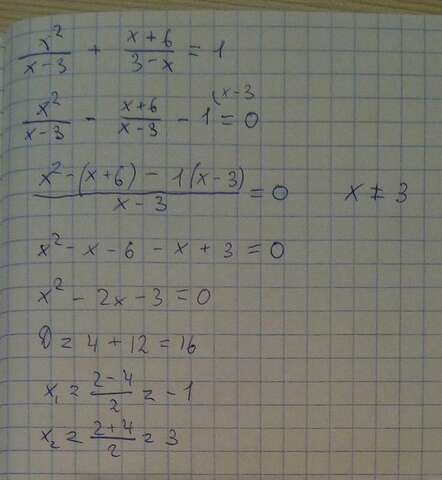 x²/(x-3) + (x+6)/(3-x) = 1
x²/(x-3) - (x+6)/(x-3) - 1 (x-3 = 0
(x²-(x+6) - 1(x-3))/(x-3) = 0 x ≠ 3
x² - x - 6 - x + 3 = 0
x² - 2x - 3 = 0
D = 4 + 12 = 16
x₁ = (2-4)/2 = -1
x₂ = (2+4)/2 = 3